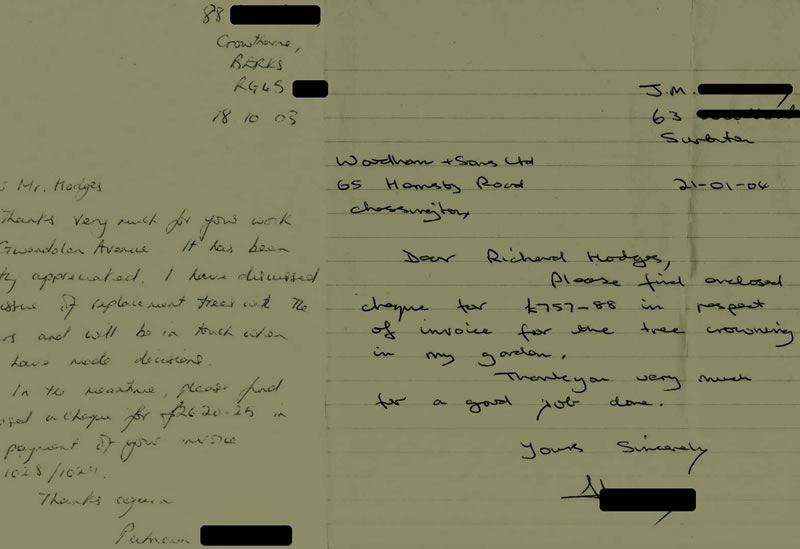 88
Crowthorne,
BERKS
RG45
18 10 03
Mr. Hodges
Thanks very much for your work
Gwendolen Avenue. It has been
appreciated. I have discussed
issue of replacement trees with the
and will be in touch when
have made decisions.
In the meantime, please find
a cheque for £2620-25 in
payment of your invoice
1028/1029.
Thanks again
J.M.
63
Surbiton
Woodham + Sons Ltd
65 Hornsby Road 21-01-04
Chessington
Dear Richard Hodges,
Please find enclosed
cheque for £757-88 in respect
of invoice for the tree crowning
in my garden.
Thankyou very much
for a good job done.
Yours Sincerely